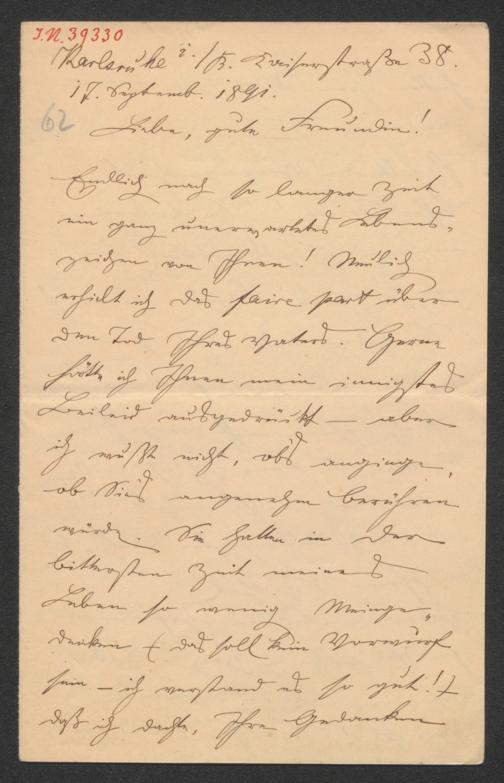 I.N. 39330
Karlsruhe i./B. Kaiserstraße 38.
17. Septemb. 1891.
62
Liebe, gute Freundin!
Endlich nach so langer Zeit
ein ganz unerwartetes Lebens-
zeichen von Ihnen! Neulich
erhielt ich das faire part über
den Tod Ihres Vaters. Gerne
hätte ich Ihnen mein innigstes
Beileid ausgedrückt — aber
ich wußt nicht, obs anginge,
ob Sie's angenehm berühren
würde. Sie hatten in der
bittersten Zeit meines
Leben so wenig Meinge-
denken (das soll kein Vorwurf
sein — ich verstand es so gut!)
daß ich dachte, Ihre Gedanken